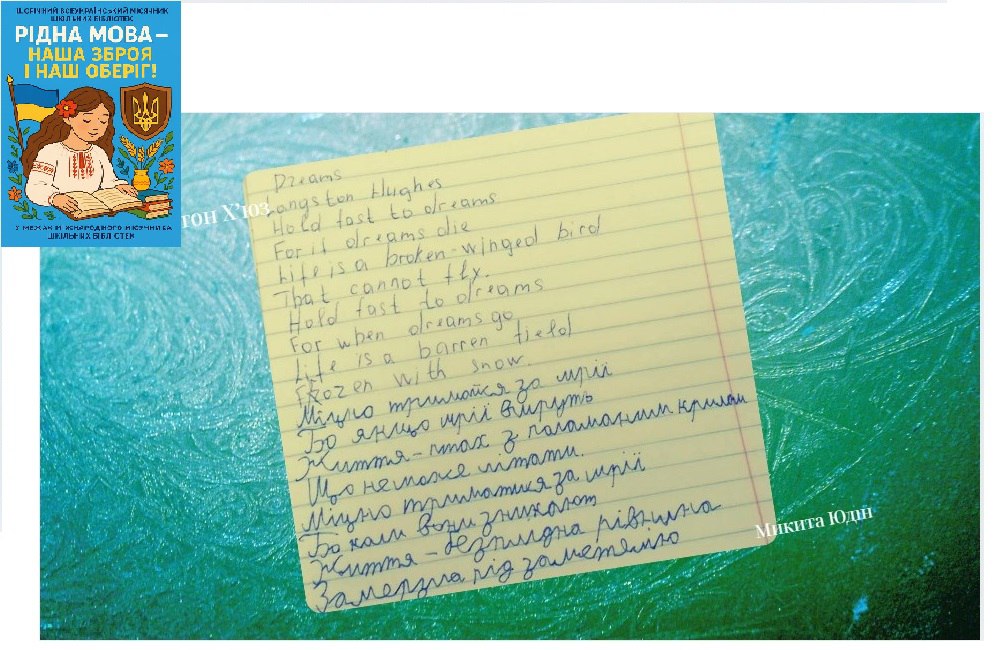 ЩОРІЧНИЙ ВСЕУКРАЇНСЬКИЙ МІСЯЧНИК
ШКІЛЬНИХ БІБЛІОТЕК
РІДНА МОВА –
НАША ЗБРОЯ
І НАШ ОБЕРІГ!
ШКІЛЬНИХ БІБЛІОТЕК
тон Х'юз
Dreams
Langston Hughes
Hold fast to dreams
For if dreams die
Life is a broken-winged bird
That cannot fly.
Hold fast to dreams
For when dreams go
Life is a barren field
Frozen with snow.
Міцно тримайся за мрії
Бо якщо мрії вмруть
Життя – птах з поламаним крилом
Що не може літати.
Міцно тримайся за мрії
Бо коли вони зникають
Життя – безплідна рівнина
Замерзла під заметемлю
Микита Юдін